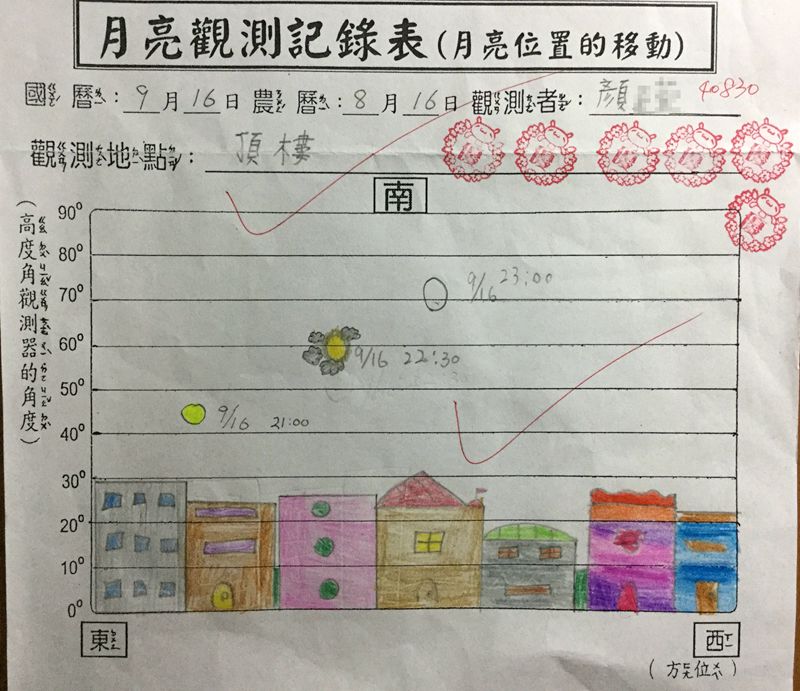 月亮觀測記錄表(月亮位置的移動)
國曆:9月16日農曆:8月16日觀測者:顏
40830
觀測地點:頂樓
南
(高度角觀測器的角度)
90°
80°
70°
60°
50°
40°
30°
20°
10°
0°
9/16 23:00
9/16 22:30
9/16 21:00
東ㄉㄨㄥ
西ㄒㄧ
(方ㄈㄤ位ㄨㄟˋ)